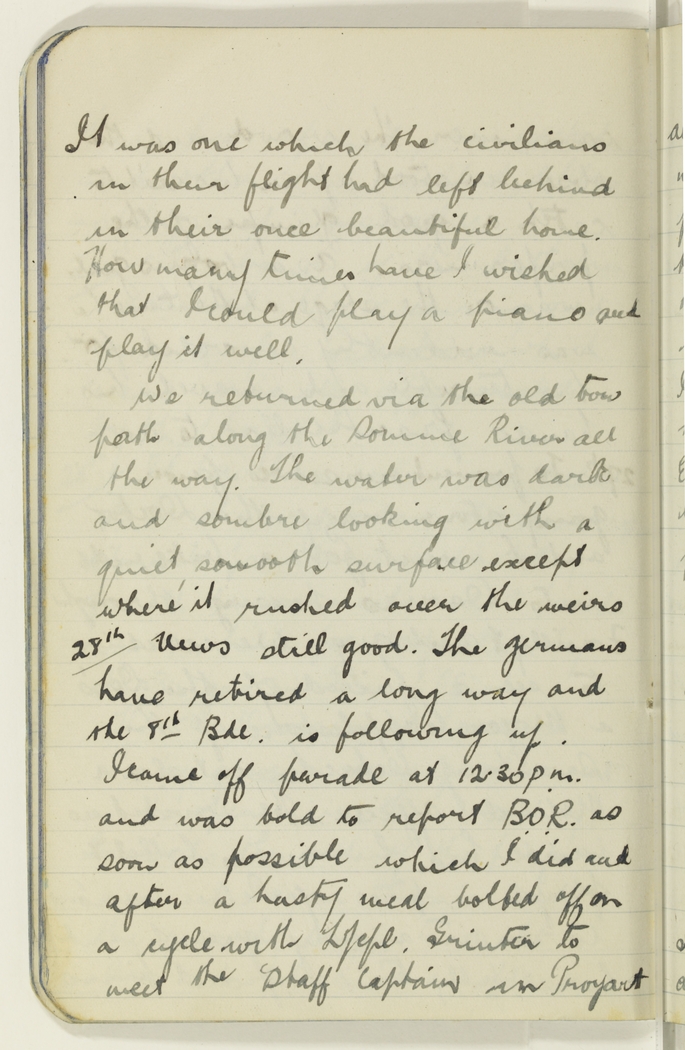 It was one which the civilians
in their flight had left behind
in their once beautiful home.
How many times have I wished
that I could play a piano and
play it well.
We returned via the old tow
path along the Somme River all
the way. The water was dark
and sombre looking with a
quiet, smooth surface except
where it rushed over the weirs
28th News still good. The germans
have retired a long way and
the 8th Bde. is following up.
I came off parade at 12.30 p.m.
and was told to report B.O.R. as
soon as possible which I did and
after a hasty meal bolted off on
a cycle with L/Cpl. Grinter to
meet the Staff Captain in Proyart